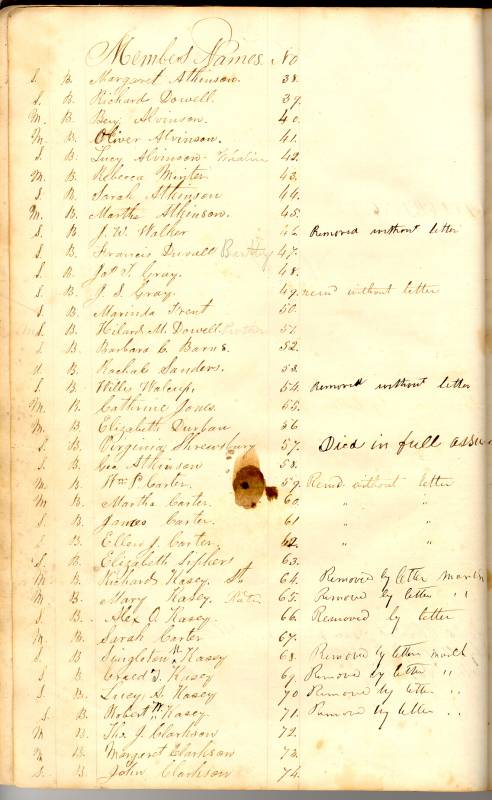 Members Names. No
S. B. Margaret Atkinson. 38.
S. B. Richard Dowell. 39.
M. B. Benj Alvinson. 40.
M. B. Oliver Alvinson. 41.
S. B. Lucy Alvinson- 42.
M. B. Rebecca Minter. 43.
S. B. Sarah Atkinson 44.
M. B. Martha Atkinson. 45.
S. B. J. W. Walker 46. Removed without letter
S. B. Francis Duvall 47.
S. B. Jas T. Gray. 48.
S. B. J. S. Gray. 49. remd without letter
S. B. Marinda Trent 50.
S. B. Hilard M. Dowell 51.
S. B. Barbara C. Barns. 52.
B. Rachale Sanders. 53.
S. B. Willis Walrip. 54. Removed without letter
M. B. Catherine Jones. 55.
M. B. Elizabeth Durbau 56
S. B. Virginia Shrewsbury 57. Died in full assu
S. B. Geo Atkinson 58.
M. B. Wm P. Carter. 59. Remd. without letter
M. B. Martha Carter. 60. " "
S. B. James Carter. 61 " "
S. B. Ellen J. Carter. 62. " "
S. B. Elizabeth Sipher 63.
M. B. Richard Kasey. Sr. 64. Removed by letter
M. B. Mary Kasey. 65. Removed by letter "
S. B. Alex O. Kasey. 66. Removed by letter
M. B. Sarah Carter 67.
S. B. Singleton N. Kasey 68. Removed by letter
S. B. Creed T. Kasey 69. Removed by letter "
S. B. Lucy A. Kasey 70 Removed by letter "
S. B. Robert W. Kasey 71. Remove by letter "
M B. Tho J. Clarkson 72.
M B. Margaret Clarkson 73.
S. B. John Clarkson 74.